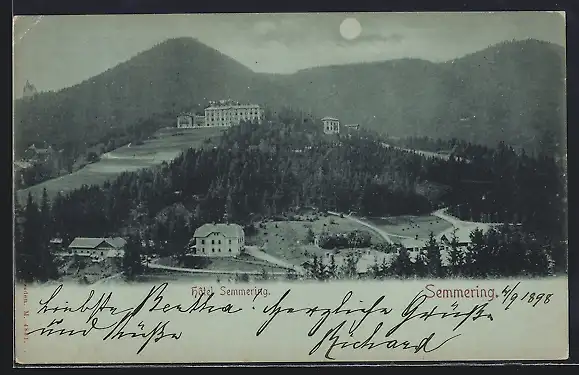 Semmering.
Hôtel Semmering.
Semmering. 4/9 1898
Liebste Bertha! Herzliche Grüße
und Küsse
Richard